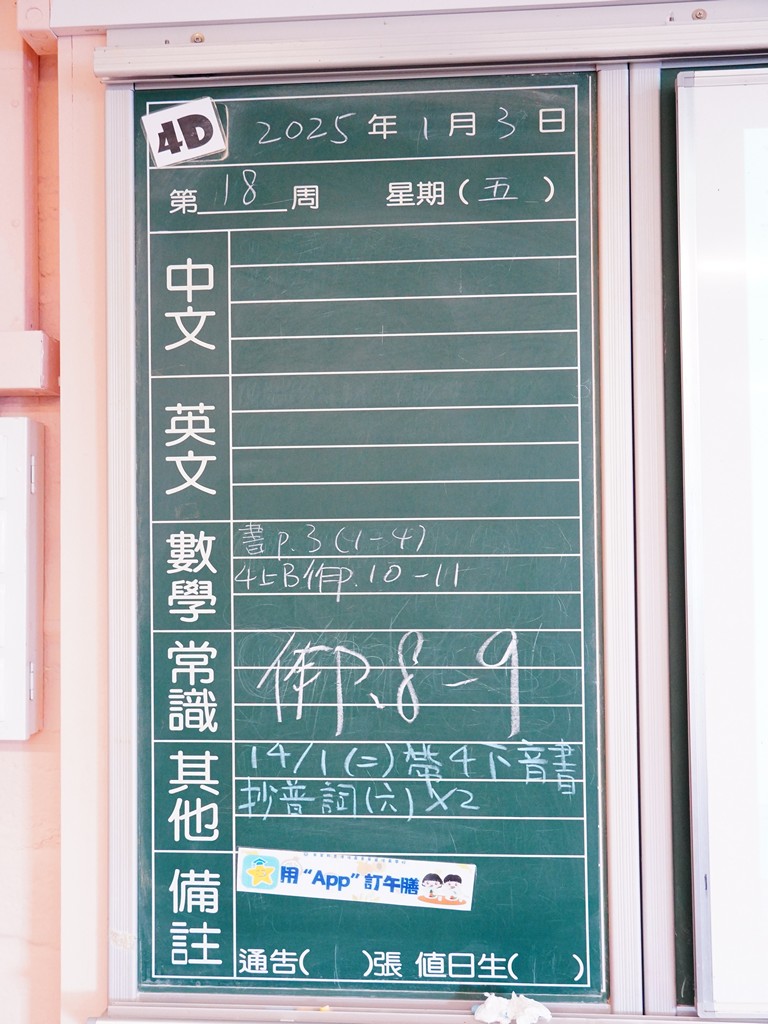 4D 2025年1月3日
第18周 星期(五)
中文
英文
數學
書p.3(1-4)
4上B作p.10-11
常識
作P.8-9
其他
14/1(二)帶4下音書
抄普詞(六)X2
備註
用“App”訂午膳
通告( )張 值日生( )